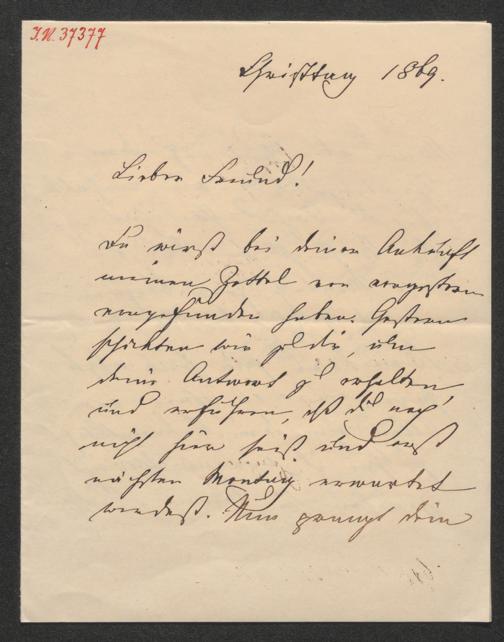 I.N. 37377
Christtag 1869.
Lieber Freund!
Du wirst bei deiner Ankunft
meinen Zettel von vorgestern
vorgefunden haben. Gestern
schickten wir zu dir, um
deine Antwort zu erhalten,
und erfuhren, daß du noch
nicht hier seist und erst
nächsten Montag erwartet
werdest. Nun prangt dein